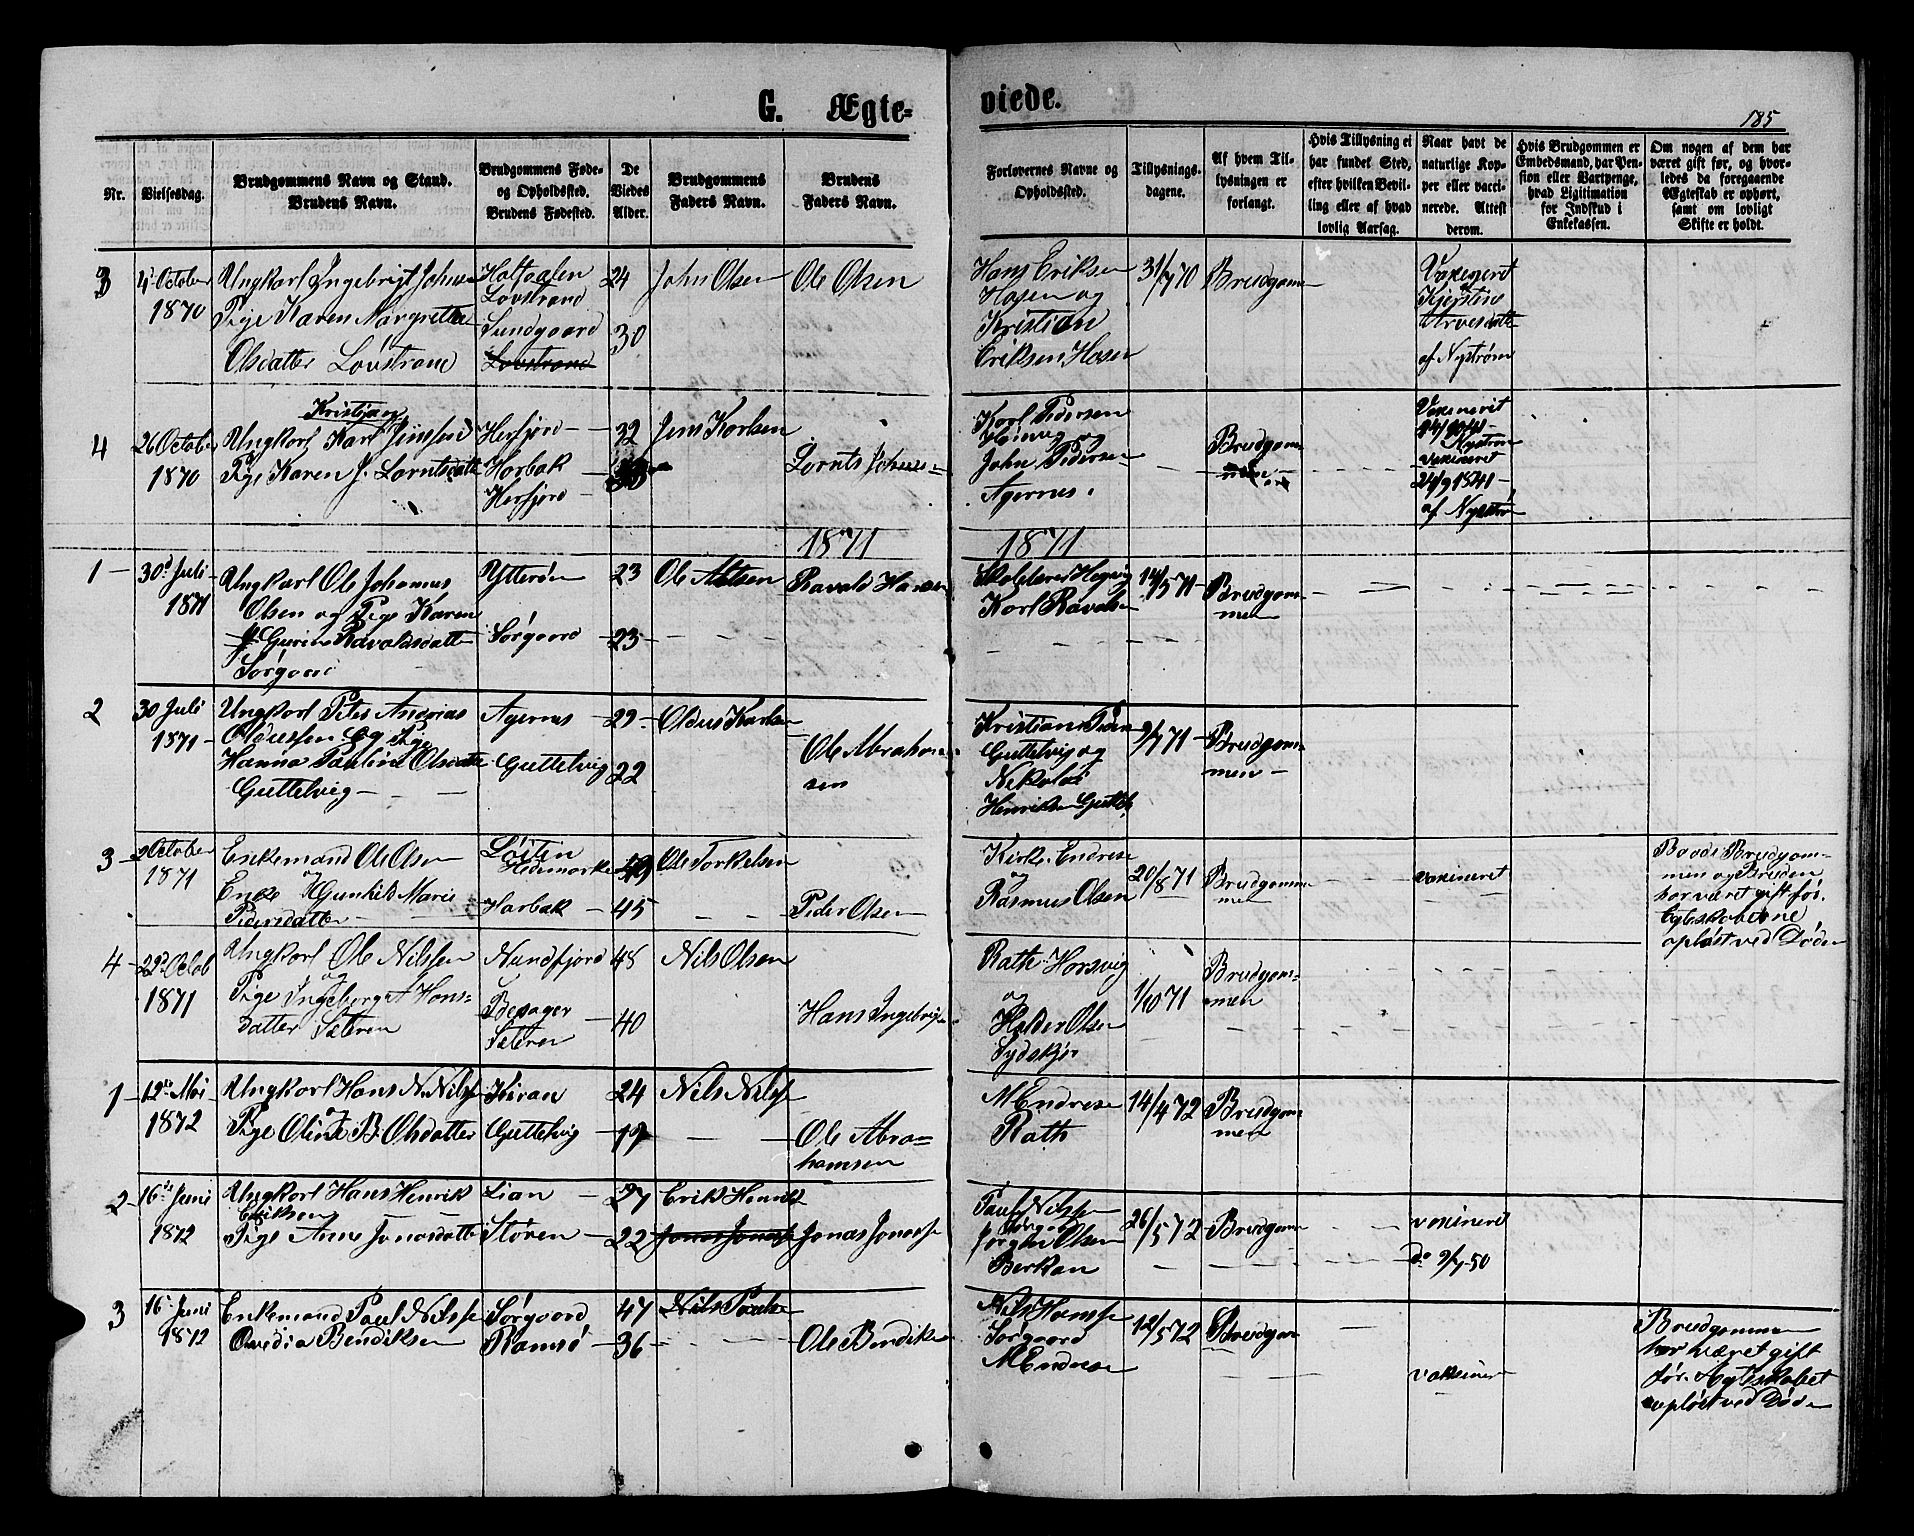 G. Ægte-
viede.
185
Nr.
Vielsesdag.
Brudgommens Navn og Stand.
Brudens Navn.
Brudgommens Føde-
og Opholdssted.
Brudens Fødested.
De
Viedes
Alder.
Brudgommens
Faders Navn.
Brudens
Faders Navn.
Forlovernes Navne og
Opholdssted.
Tillysnings-
dagene.
Af hvem Til-
lysningen er
forlangt.
Hvis Tillysning ei
har fundet Sted,
efter hvilken Bevil-
ling eller af hvad
lovlig Aarsag.
Naar havt de
naturlige Kop-
per eller vacci-
nerede. Attest
derom.
Hvis Brudgommen er
Embedsmand, har Pen-
sion eller Vartpenge,
hvad Ligitimation
for Indskud i
Enkekassen.
Om nogen af dem har
været gift før, og hvor-
ledes da foregaaende
Ægteskab er ophørt,
samt om lovligt
Skifte er holdt.
3
4 October
1870
Ungkarl Ingebrigt Johnsen
Pige Karen Margretha
Olsdatter Lovstrand
Holtaalen
Lovstrand
Sundgaard
Lovstrand
24
30
John Olsen
Ole Olsen
Hans Eriksen
Hosen og
Kristian
Eriksen Hosen
31/7 70
Brudgom
Vaxineret
Kjerstin
af Nystrøm
4
26 October
1870
Kristian
Ungkarl Karl Jenssen
Pige Karen J. Lorntsdatt
Herfjord
Harbak
Herfjord
32
Jens Karlsen
Lornts Johns
Karl Pedersen
og
John Pedersen
Agernes
Brudgom
Vaxinerit
Nystrøm
vaxineret
24/9 1841
af Nystrø
1871
1871
1
30 Juli
1871
Ungkarl Ole Johannes
Olsen og Pige Karen
Gurine Ravaldsdatt
Sørgaard
Ytterøn
Sørgaard
23
23
Ole Altsen
Ravald Hansen
Karl Ravalds
14/5 71
Brudgom-
men
2
30 Juli
1871
Ungkarl Peter Andrias
Oldussen og Pige
Hanna Pauline Olsdatt
Guttelvig
Agernes
Guttelvig
29
22
Oldus Karlsen
Ole Abraham
sen
Kristian Peder
Guttelvig og
Nikolai
Henriksen Guttelv
9/7 71
Brudgom-
men
3
2 October
1871
Enkemand Ole Olsen
og
Enke Gunhild Marie
Pedersdatter
Løiten
Hedemarke
Harbak
49
45
Ole Torkelsen
Peder Olsen
Kirks. Endrese
og
Rasmus Olsen
20/8 71
Brudgomm
men
vaxineret
Baade Brudgom-
men og Bruden
har været gift før.
Egteskaberne
opløst ved Døden
4
29 Octob
1871
Ungkarl Ole Nilssen
og
Pige Ingeborg A Hans-
datter Sæteren
Nundfjord
Besager
Sæteren
48
40
Nils Olsen
Hans Ingebrigt
Rath Horsvig
og
Halder Olsen
Sydskjør
1/10 71
Brudgom-
men
1
12 Mai
1872
Ungkarl Hans N. Nilss
og
Pige Oline B. Olsdatter
Kiran
Guttelvig
24
19
Nils Nilss
Ole Abra-
hamsen
M Endrese
Rath
14/4 72
Brudgom
men
2
16 Juni
1872
Ungkarl Hans Henrik
Eriksen
Pige Anne Jonasdatter
Lian
Støren
27
22
Erik Henrik
Jonas Jonass
Jonas Jonass
Paul Nilss
Sørgaard
Jørgen Olsen
Berkan
26/5 72
Brudgom
vaxineret
Do 9/7 50
3
16 Juni
1872
Enkemand Paul Nilss
Ovedia Bendiksen
Sørgaard
Ramsø
47
36
Nils Pauls
Ole Bendiks
Nils Hanss
Sørgaard
M Endrese
12/5 72
Brudgom
vaksiner
Brudgommen
har været gift
før. Ægteskabet
opløst ved Døde